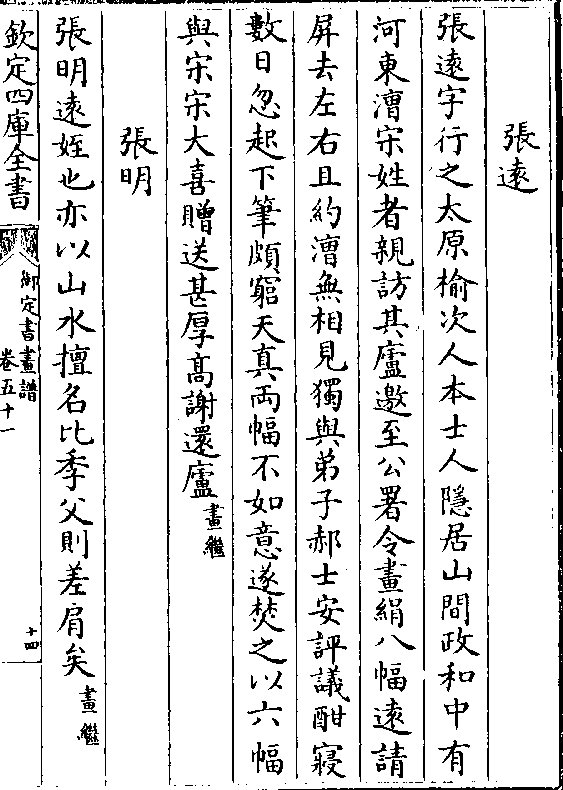 張遠
張遠字行之太原榆次人本士人隱居山間政和中有
河東漕宋姓者親訪其廬邀至公署令畫絹八幅遠請
屏去左右且約漕無相見獨與弟子郝士安評議酣寢
數日忽起下筆頗窮天真兩幅不如意遂焚之以六幅
與宋宋大喜贈送甚厚高謝還廬畫繼
張明
張明遠姪也亦以山水擅名比季父則差肩矣畫繼
欽定四庫全書
御定書畫譜
卷五十一
十四